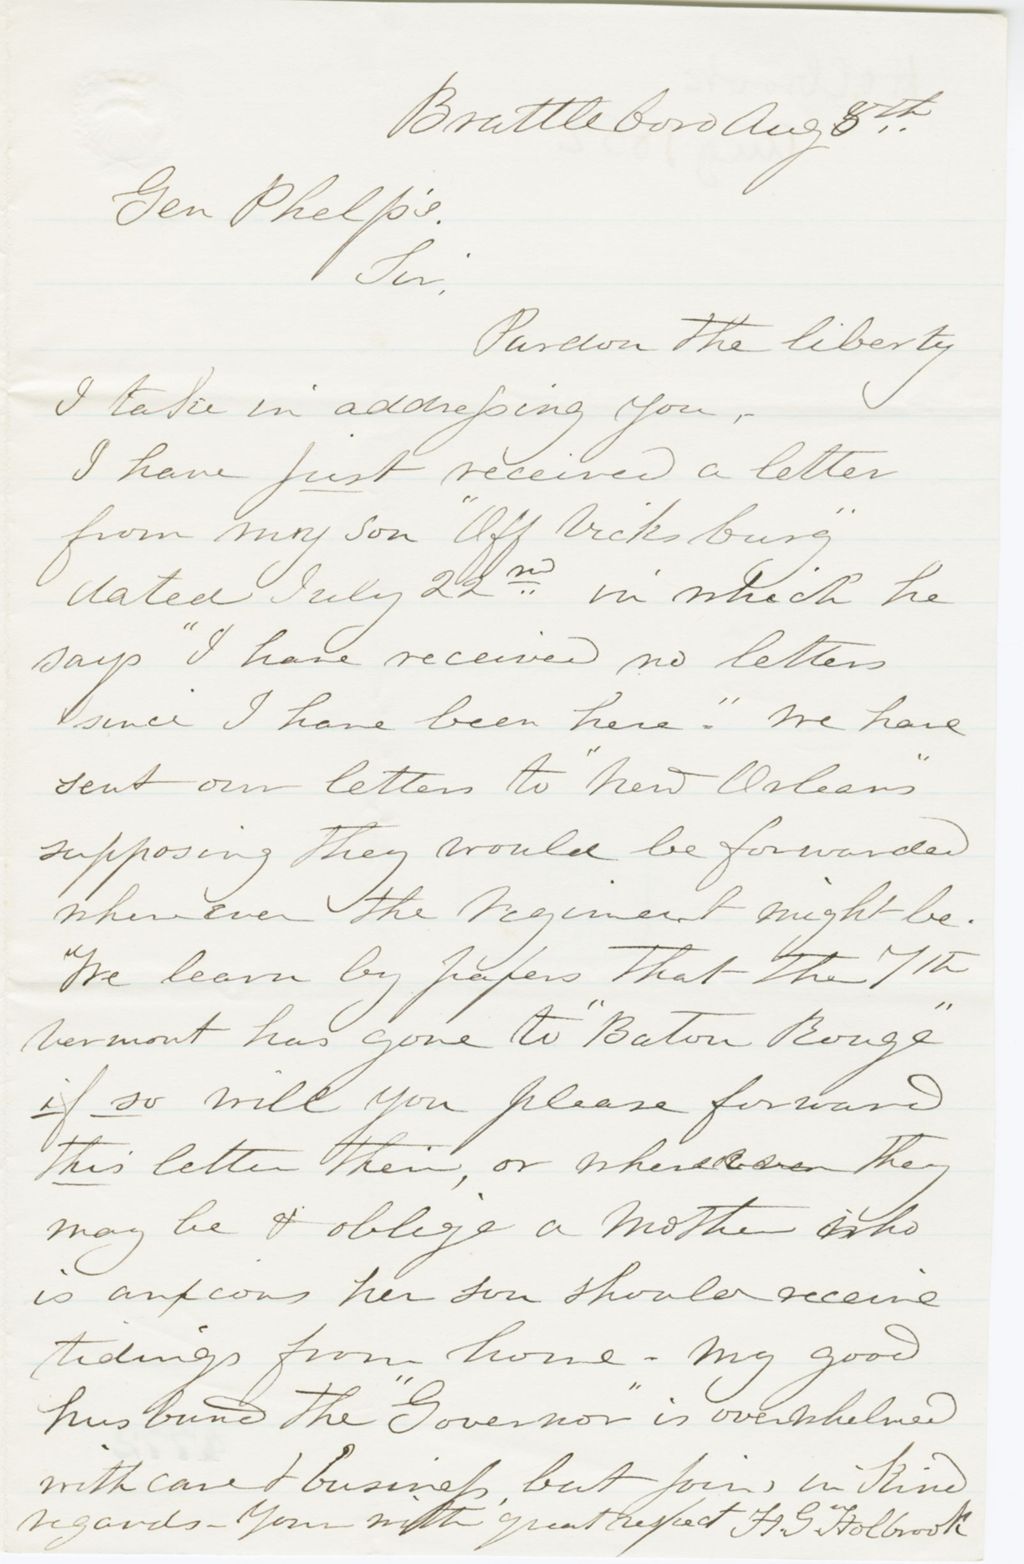 Brattleboro Aug 8th.
Gen Phelp's.
Sir,
Pardon the liberty
I take in addressing you,
I have just received a letter
from my son "Off Vicksburg"
dated July 22nd in which he
says "I have received no letters
since I have been here." We have
sent our letters to "New Orleans"
supposing they would be forwarded
wherever the regiment might be.
"We learn by papers that the 7th
Vermont has gone to "Baton Rouge"
if so will you please forward
this letter their, or wherever they
may be & oblige a Mother who
is anxious her son should receive
tidings from home - My good
husband the "Governor" is overwhelmed
with care & business, but joins in kind
regards - Yours with great respect H. G. Holbrook